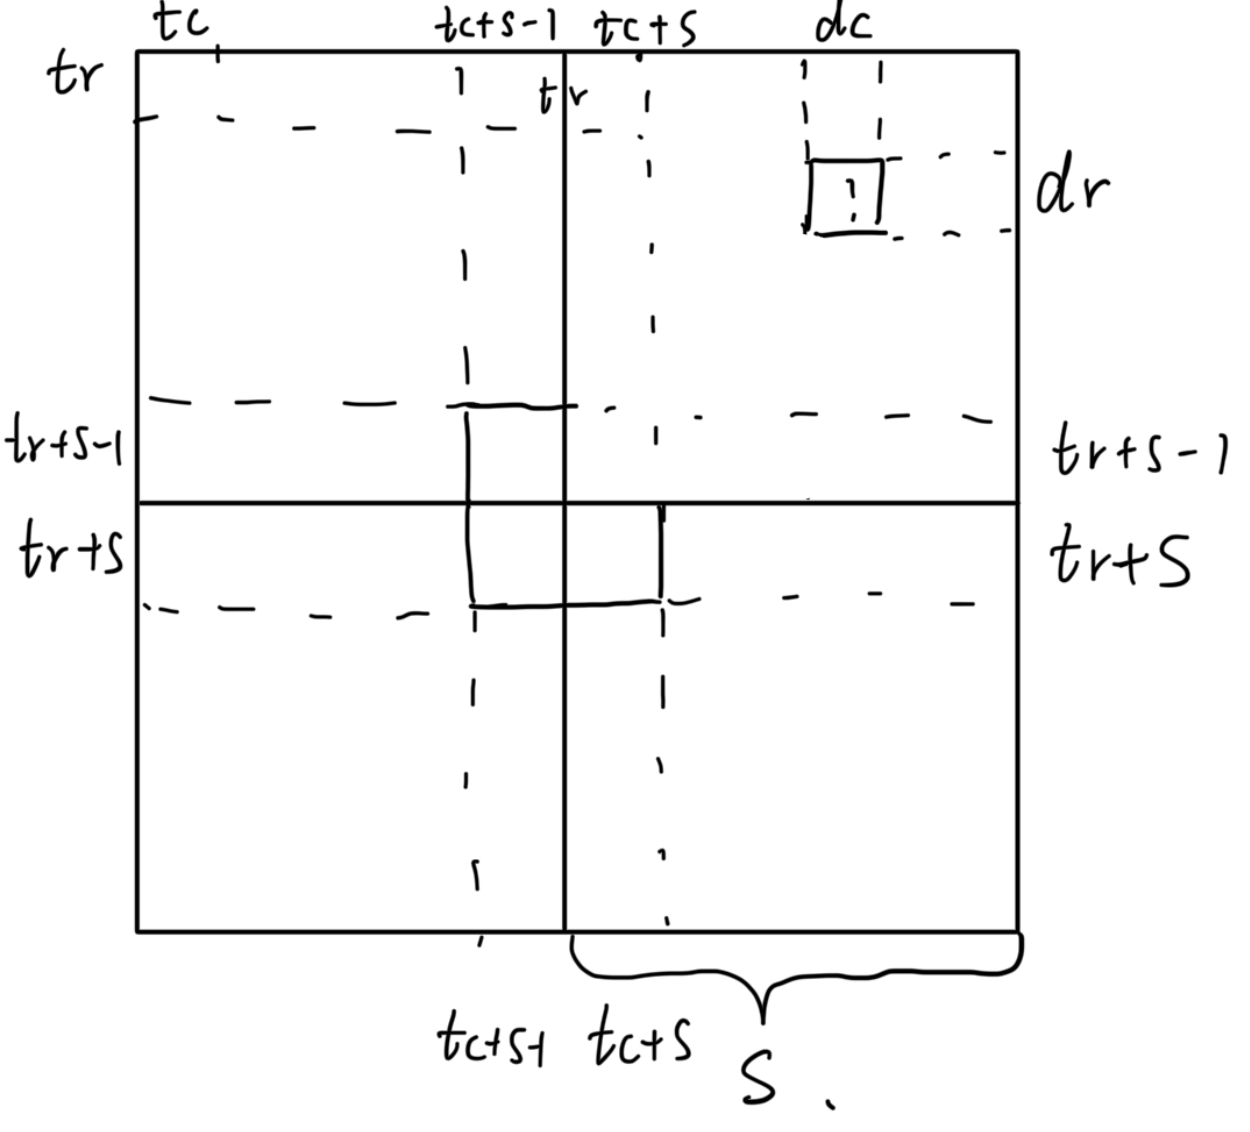 tc tc+s-1 tc+s dc
tr tr
dr
tr+s-1 tr+s-1
tr+s tr+s
tc+s1 tc+s
s